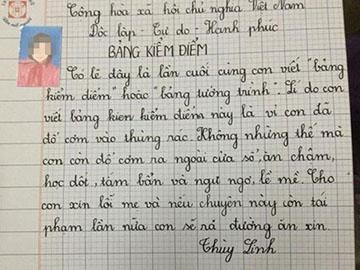 Cộng hòa xã hội chủ nghĩa Việt Nam
Độc lập - Tự do - Hạnh phúc
BẢNG KIỂM ĐIỂM
Có lẽ đây là lần cuối cùng con viết "bảng
kiểm điểm" hoặc "bảng tường trình". Lí do con
viết bảng kiểm điểm này là vì con đã
đổ cơm vào thùng rác. Không những thế mà
con còn đổ cơm ra ngoài cửa sổ, ăn chậm,
học dốt, tắm bẩn và ngu ngơ, lề mề. Cho
con xin lỗi mẹ và nếu chuyện này còn tái
phạm lần nữa con sẽ ra đường ăn xin.
Thùy Linh